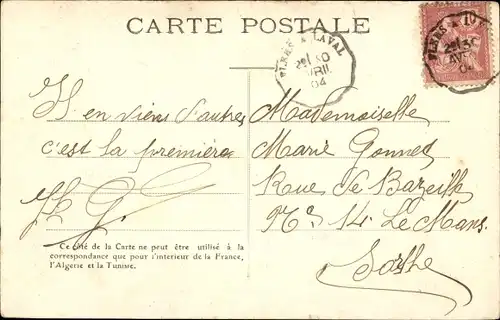 CARTE POSTALE
FLERS A LAVAL
30
AVRIL
04
Il en viens d'autres
c'est la première
Mademoiselle
Marie Gonnet
Rue de Bazeille
Nº 14. Le Mans.
Sarthe
Ce côté de la Carte ne peut être utilisé à la
correspondance que pour l'interieur de la France,
l'Algerie et la Tunisie.